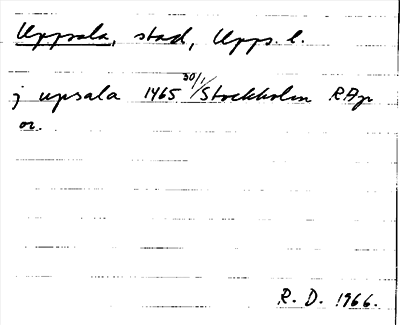 Uppsala, stad, Upps. l.
j upsala 1465 30/1 Stockholm RAp
or.
R. D. 1966.